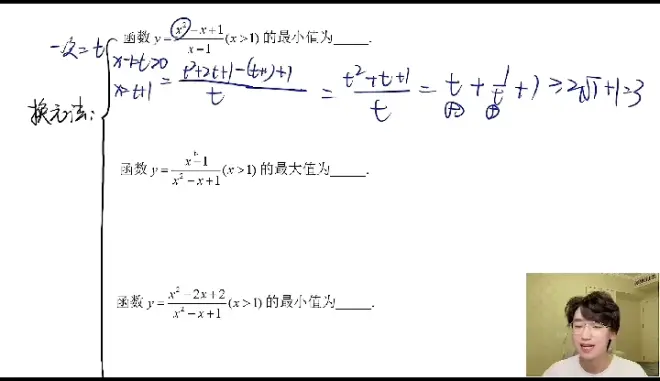 一次=t
函数 y=\frac{x²-x+1}{x-1}(x>1) 的最小值为_____.
x-1=t>0
x=t+1
=\frac{t²+2t+1-(t+1)+1}{t} = \frac{t²+t+1}{t} = t+\frac{1}{t}+1≥2√1+1=3
换元法:
函数 y=\frac{x-1}{x²-x+1}(x>1) 的最大值为_____.
函数 y=\frac{x²-2x+2}{x²-x+1}(x>1) 的最小值为_____.